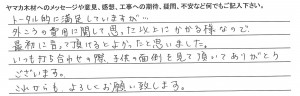 ヤマカ木材へのメッセージや意見、感想、工事への期待、疑問、不安など何でもご記入下さい。
トータル的に満足していますが…
外こうの費用に関して思った以上にかかる様なので、
最初に言って頂けるとよかったと思いました。
いつも打ち合わせの際、子供の面倒を見て頂いてありがとう
ございます。
これからも よろしくお願い致します。